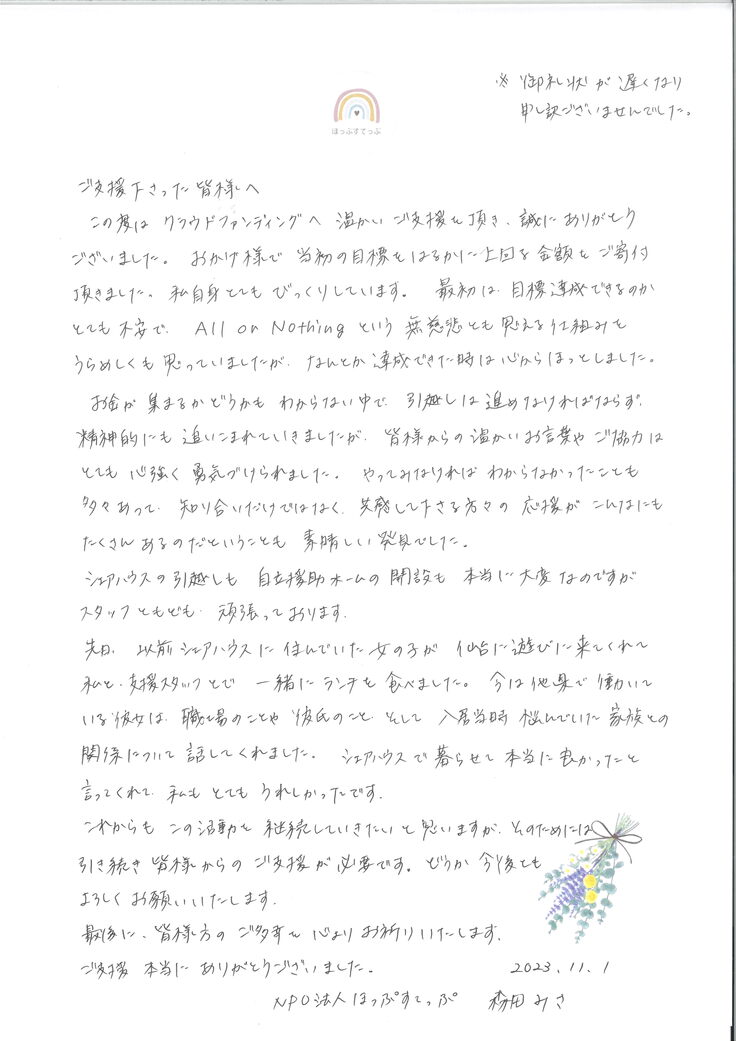 ※ 御礼状が遅くなり
申し訳ございませんでした。
ほっぷすてっぷ
ご支援下さった皆様へ
この度は クラウドファンディングへ 温かい ご支援を頂き、誠に ありがとう
ございました。 おかげ様で 当初の目標を はるかに上回る 金額を ご寄付
頂きました。 私自身とても びっくりしています。 最初は、目標達成できるのか
とても 不安で、 All or Nothing という 無慈悲とも 思える仕組みを
うらめしくも 思っていましたが、 なんとか 達成できた時は 心からほっとしました。
お金が 集まるかどうかも わからない中で、引越しは 進めなければならず、
精神的にも 追いこまれていきましたが、 皆様からの 温かいお言葉や ご協力は
とても 心強く 勇気づけられました。 やってみなければ わからなかったことも
多々あって、 知り合いだけではなく、共感して下さる方々の 応援が こんなにも
たくさん あるのだということも 素晴しい 発見でした。
シェアハウスの引越しも 自立援助ホームの 開設も 本当に大変なのですが
スタッフともども、頑張っております。
先日、 以前シェアハウスに 住んでいた女の子が 仙台に遊びに来てくれて
私と、支援スタッフとで 一緒にランチを 食べました。 今は他県で働いて
いる彼女は、職場のことや 彼氏のこと、そして 入居当時 悩んでいた 家族との
関係について 話してくれました。 シェアハウスで暮らせて 本当に良かったと
言ってくれて、私も とても うれしかったです。
これからも この活動を 継続していきたいと 思いますが、そのためには
引き続き 皆様からの ご支援が 必要です。 どうか 今後とも
よろしく お願いいたします。
最後に、皆様方の ご多幸を 心より お祈りいたします。
ご支援 本当に ありがとうございました。 2023.11.1
NPO法人ほっぷすてっぷ 森田 みさ